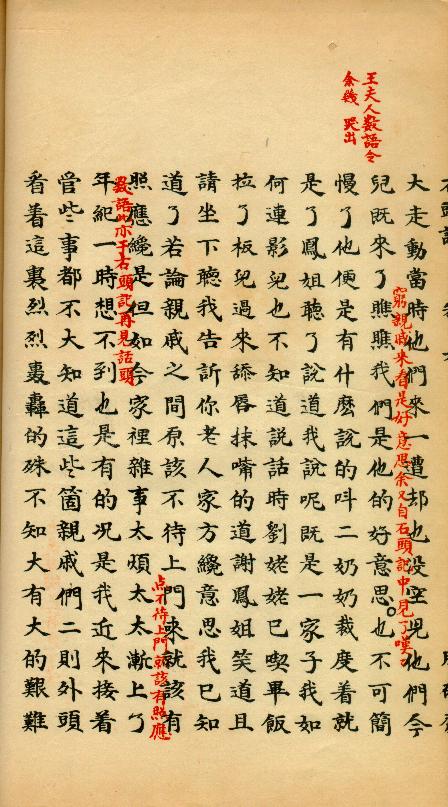 王夫人数語令
余幾 哭出
大走動當時他們来一遭却也没空兒他們今
窮親戚来看是好意思余又自石頭記中見了嘆嘆
兒既来了瞧瞧我們是他的好意思也不可簡
慢了他便是有什麽說的呌二奶奶裁度着就
是了鳳姐聽了說道我說呢既是一家子我如
何連影兒也不知道說話時劉姥姥已喫畢飯
拉了板兒過來舔唇抹嘴的道謝鳳姐笑道且
請坐下聽我告訴你老人家方纔意思我已知
道了若論親戚之間原該不待上門來就該有
點不待上門就該有照應
照應纔是但如今家裡雜事太煩太太漸上了
数語此亦于石頭記再見話頭
年紀一時想不到也是有的况是我近來接着
管些事都不大知道這些箇親戚們二則外頭
看着這裏烈烈轟轟的殊不知大有大的艱難